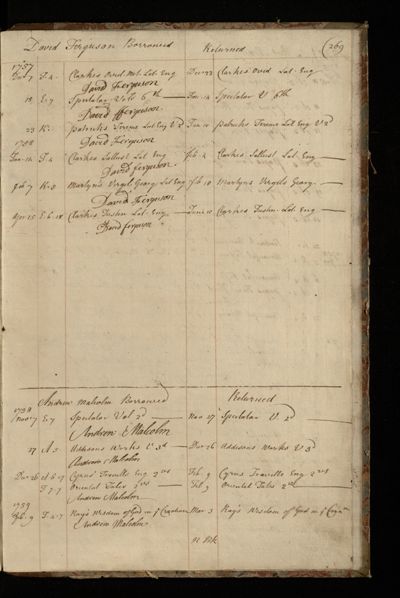 David Ferguson Borrowed Returned 269
1757
Decr 7 F.4. Clarkes Ovid Met. Lat. Eng Decr 22 Clarkes Ovid Lat. Eng
David Ferguson
18 E.7 Spectator Vol. 6th Jan. 14 Spectator V 6th
David Ferguson
23 K. Patricks Terence Lat. Eng V 2d Jan 10 Patricks Terence Lat. Eng V 2d
1758 David Ferguson
Jan. 14 F.4 Clarkes Sallust Lat. Eng Feb. 4 Clarkes Sallust Lat. Eng
David Ferguson
Feb 7 K.8 Martyns Virgils Georg. Lat Eng Feb. 18 Martyns Virgils Georg.
David Ferguson
Apr 25 E.6.18 Clarkes Justin Lat. Eng June 10 Clarkes Justin Lat. Eng
David Ferguson
Andrew Malcolm Borrowed Returned
1758
Novr 7 E.7 Spectator Vol 2d Nov 27 Spectator V 2d
Andrew Malcolm
27 A.5 Addisons Works V. 3d Decr 26 Addisons Works V 3d
Andrew Malcolm
Decr 26 Cyrus' Travells Eng 2 vs Feb. 9 Cyrus Travells Eng 2 vs
F.7.7 Oriental Tales 2 vs Feb 9 Oriental Tales 2 vs
Andrew Malcolm
1759
Feb. 9 F.4.7 Ray's Wisdom of God in ye Creation Mar 3 Ray's Wisdom of God in ye
Andrew Malcolm